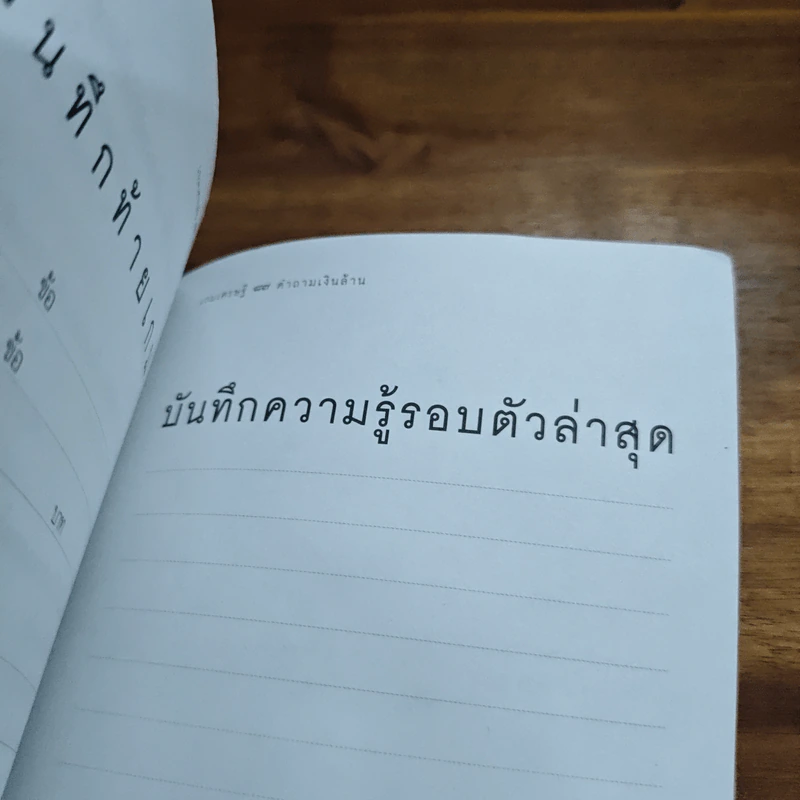 นทึกท้ายเก
ข้อ
ข้อ
บาท
เศรษฐี ๙๙ คำถามเงินล้าน
บันทึกความรู้รอบตัวล่าสุด